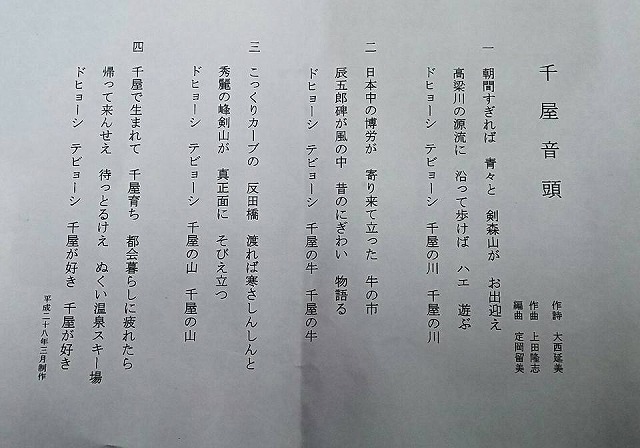 千屋音頭
作詩 大西延美
作曲 上田隆志
編曲 定岡留美
一 朝間すぎれば 青々と 剣森山が お出迎え
高梁川の源流に 沿って歩けば ハエ 遊ぶ
ドヒョーシ テビョーシ 千屋の川 千屋の川
二 日本中の博労が 寄り来て立った 牛の市
辰五郎碑が風の中 昔のにぎわい 物語る
ドヒョーシ テビョーシ 千屋の牛 千屋の牛
三 こっくりカーブの 反田橋 渡れば寒さしんしんと
秀麗の峰剣山が 真正面に そびえ立つ
ドヒョーシ テビョーシ 千屋の山 千屋の山
四 千屋で生まれて 千屋育ち 都会暮らしに疲れたら
帰って来んせえ 待っとるけえ ぬくい温泉スキー場
ドヒョーシ テビョーシ 千屋が好き 千屋が好き
平成二十八年三月制作